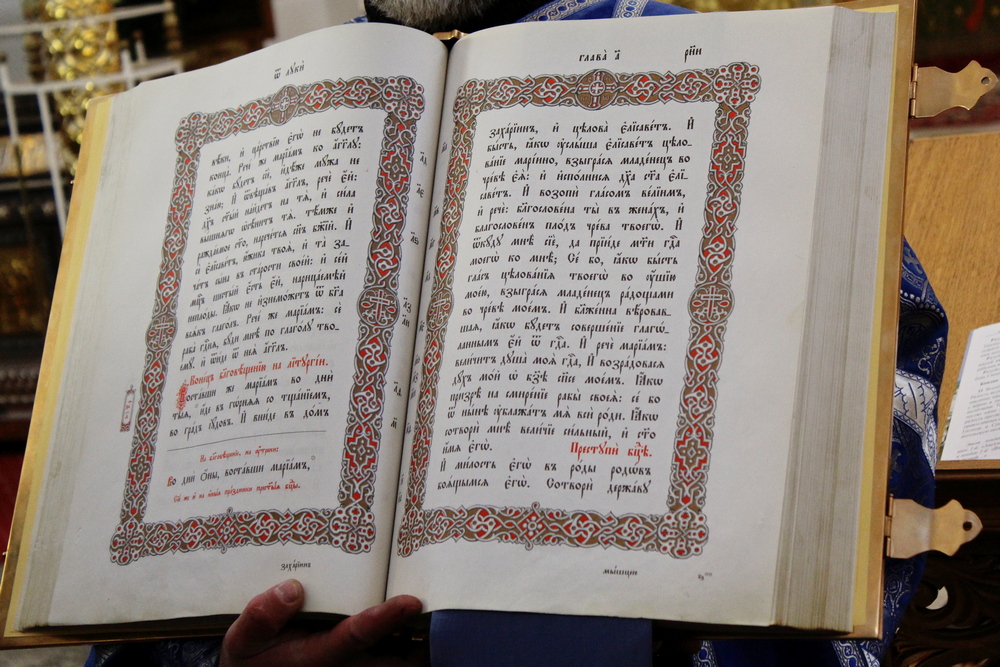 Ѿ лꙋки́
вѣки, и҆ царствїю є҆гѡ̀ не бꙋ́детъ
конца̀. Рече́ же марїа́мъ ко а҆́гг҃лꙋ:
ка́кѡ бꙋ́детъ сїѐ, и҆дѣ́же мꙋ́жа не
зна́ю; И҆ ѿвѣща́въ а҆́гг҃лъ, речѐ є҆́й:
дх҃ъ ст҃ы́й на́йдетъ на тѧ̀, и҆ си́ла
вы́шнѧгѡ ѡ҆сѣни́тъ тѧ̀. тѣ́мже и҆
ражда́емое ст҃о, нарече́тсѧ сн҃ъ бж҃їй. И҆
сѐ є҆лїсаве́тъ, ю҆́жика твоѧ̀, и҆ та̀ за-
ча́тъ сы́на въ ста́рости свое́й: и҆ се́й
мц҃ъ шесты́й є҆́сть є҆́й, нарица́емѣй
непло́ды. Ꙗ҆́кѡ не и҆знемо́жетъ ѿ бг҃а
всѧ́къ глаго́лъ. Рече́ же марїа́мъ: сѐ
раба̀ гд҇нѧ, бꙋ́ди мнѣ̀ по глаго́лꙋ тво-
емꙋ̀. и҆ ѿи́де ѿ неѧ̀ а҆́гг҃лъ.
Коне́цъ бл҃говѣ́щенїю на лїтꙋргі́и.
Воста́вши же марїа́мъ во дни̑
ты̑ѧ, и҆́де въ гѡ́рнѧѧ со тща́нїемъ,
во гра́дъ і҆ꙋ́довъ. И҆ вни́де въ до́мъ
На бл҃говѣ́щенїе, на ᲂу҆́трени:
Во дни̑ ѻ҆́ны, воста́вши марїа́мъ,
захарі́инъ
глава̀ а҃
захарі́инъ, и҆ цѣлова̀ є҆лїсаве́тъ. И҆
бы́сть, ꙗ҆́кѡ ᲂу҆слы́ша є҆лїсаве́тъ цѣло-
ва́нїе марі́ино, взыгра́сѧ младе́нецъ во
чре́вѣ є҆ѧ̀: и҆ и҆спо́лнисѧ дх҃а ст҃а є҆лї-
саве́тъ. И҆ возопѝ гла́сомъ ве́лїимъ,
и҆ речѐ: бл҃гослове́на ты̀ въ жена́хъ, и҆
бл҃гослове́нъ пло́дъ чре́ва твоегѡ̀. И҆
ѿкꙋ́дꙋ мнѣ̀ сїѐ, да прїи́де мт҃и гд҇а
моегѡ̀ ко мнѣ̀; Се́ бо, ꙗ҆́кѡ бы́сть
гла́съ цѣлова́нїѧ твоегѡ̀ во ᲂу҆́шїю
мое́ю, взыгра́сѧ младе́нецъ ра́дощами
во чре́вѣ мое́мъ. И҆ бл҃же́нна вѣ́ровав-
шаѧ, ꙗ҆́кѡ бꙋ́детъ соверше́нїе глаго́-
ланнымъ є҆́й ѿ гд҇а. И҆ речѐ марїа́мъ:
вели́читъ дꙋша̀ моѧ̀ гд҇а, И҆ возра́довасѧ
дꙋ́хъ мо́й ѡ҆ бз҃ѣ сп҃сѣ мое́мъ. Ꙗ҆́кѡ
призрѣ̀ на смире́нїе рабы̀ своеѧ̀: се́ бо
ѿ ны́нѣ ᲂу҆блажа́тъ мѧ̀ всѝ ро́ди. Ꙗ҆́кѡ
сотворѝ мнѣ̀ вели́чїе си́льный, и҆ ст҃о
и҆́мѧ є҆гѡ̀. Престꙋпѝ бц҃ѣ.
И҆ ми́лость є҆гѡ̀ въ ро́ды родѡ́въ
боѧ́щымсѧ є҆гѡ̀. Сотворѝ держа́вꙋ